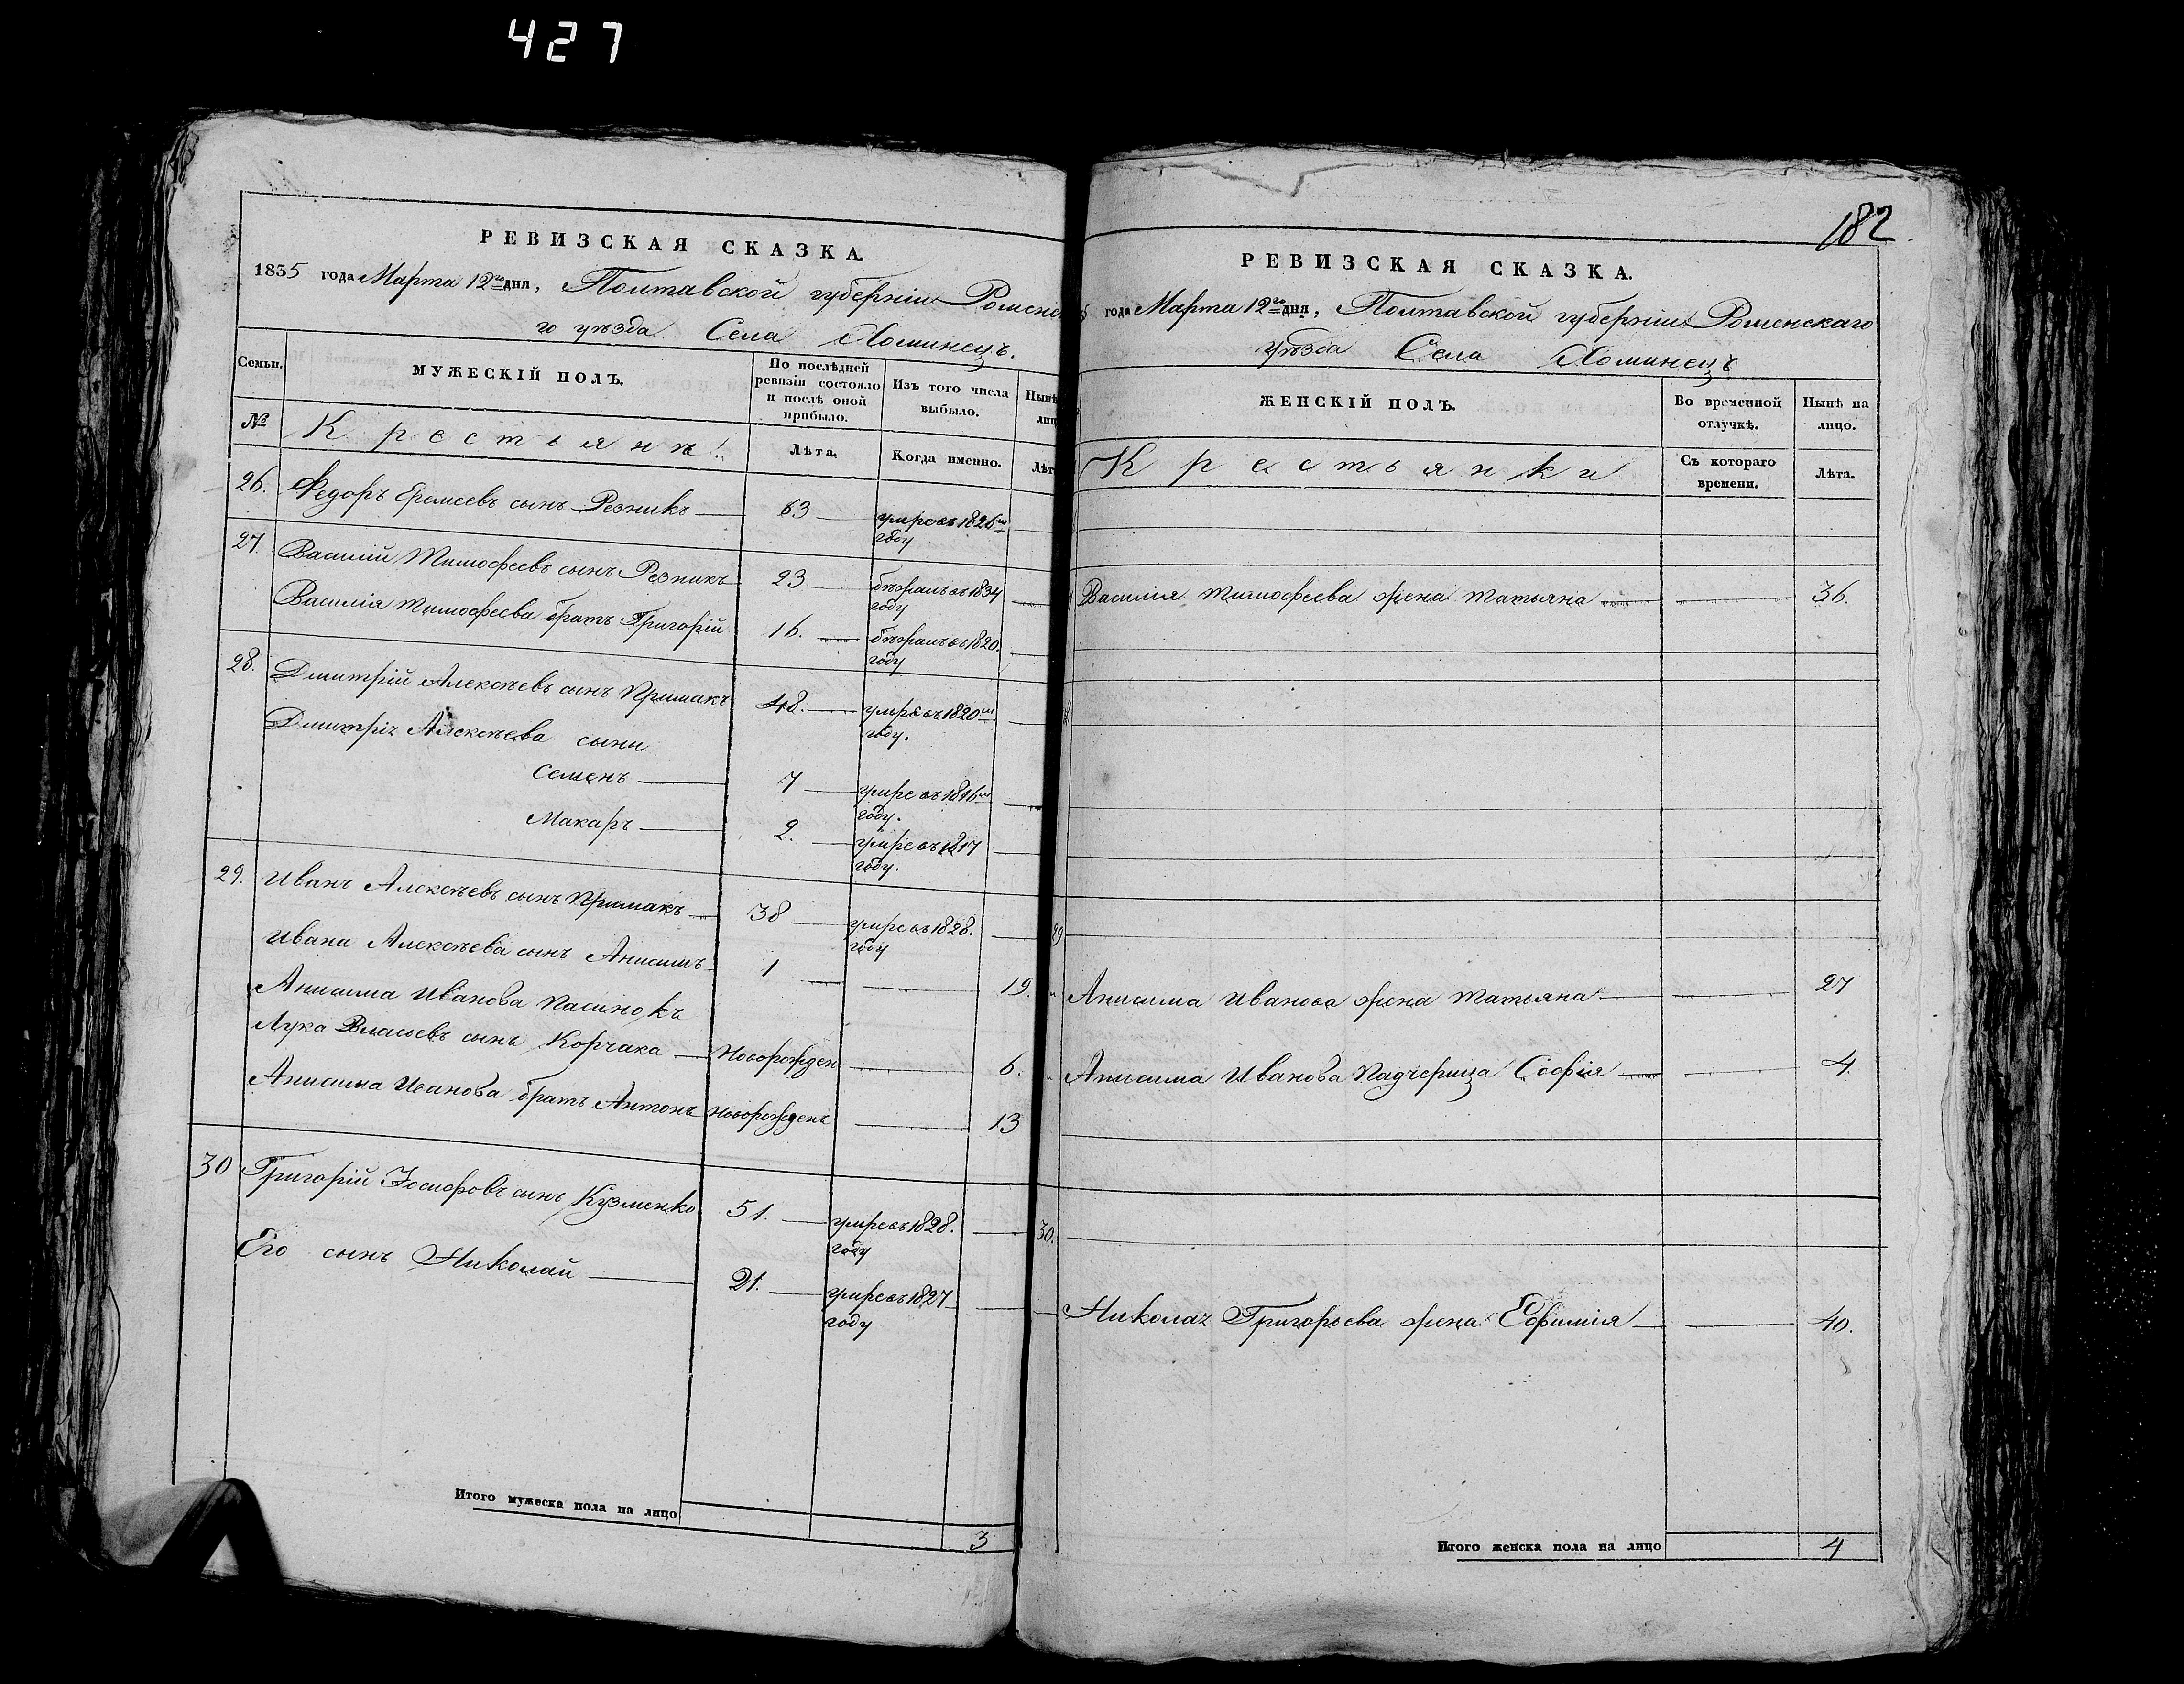 427
РЕВИЗСКАЯ СКАЗКА.
1835 года Марта 12го дня, Полтавской губерніи Роменска
го уѣзда Села Хоминецъ.
Семьи.
МУЖЕСКІЙ ПОЛЪ.
По послѣдней
ревизіи состояло
и послѣ оной
прибыло.
Изъ того числа
выбыло.
Нынѣ
лиц
№
Крестьянѣ
Лѣта.
Когда именно.
Лѣт
26. Федоръ Еремеевъ сынъ Резникъ 63 умре въ 1826м
году
27. Василій Тимофеевъ сынъ Резникъ 23 бѣжалъ въ 1834
году
Василія Тимофеева братъ Григорій 16. бѣжалъ въ 1820.
году
28. Дмитрій Алексѣевъ сынъ Примакъ 48. умре въ 1820м
году.
Дмитрія Алексѣева сыны
Семенъ 7 умре въ 1816м
году.
Макаръ 2. умре въ 1817
году.
29. Иванъ Алексѣевъ сынъ Примакъ 38 умре въ 1828.
году
Ивана Алексѣева сынъ Анисимъ 1 19.
Анисима Иванова Пасинокъ
Лука Власьевъ сынъ Корчака Новорожден 6.
Анисима Иванова братъ Антонъ Новорожденъ 13
30 Григорій Іосифовъ сынъ Кузменко 51. умре въ 1828.
году
Его сынъ Николай 21. умре въ 1827
году
Итого мужеска пола на лицо
3
182
РЕВИЗСКАЯ СКАЗКА.
5 года Марта 12го дня, Полтавской губерніи Роменскаго
Уѣзда Села Хоминецъ
ЖЕНСКІЙ ПОЛЪ.
Во временной
отлучкѣ.
Нынѣ на
лицо.
Крестьянки
Съ котораго
времени.
Лѣта.
Василія Тимофеева жена Татьяна 36.
29
Анисима Иванова жена Татьяна 27
Анисима Иванова Падчерица Софія 4.
30.
Николая Григорьева жена Ефимія 40.
Итого женска пола на лицо
4